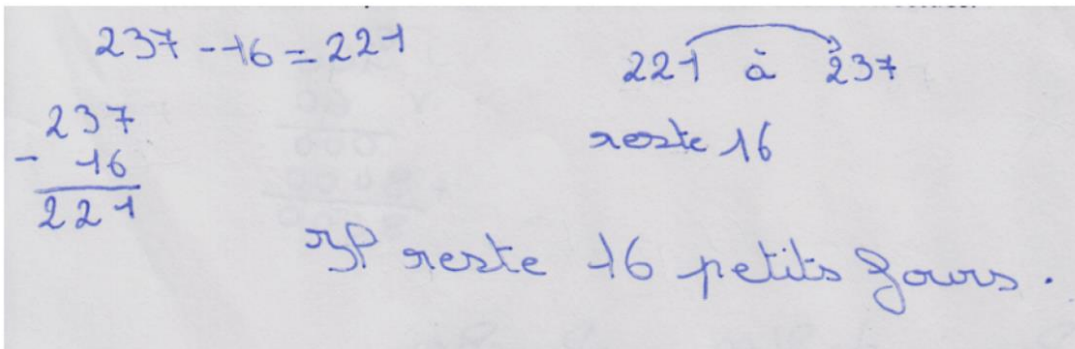 237 - 16 = 221
237
- 16
221
221 à 237
reste 16
Il reste 16 petits fours.